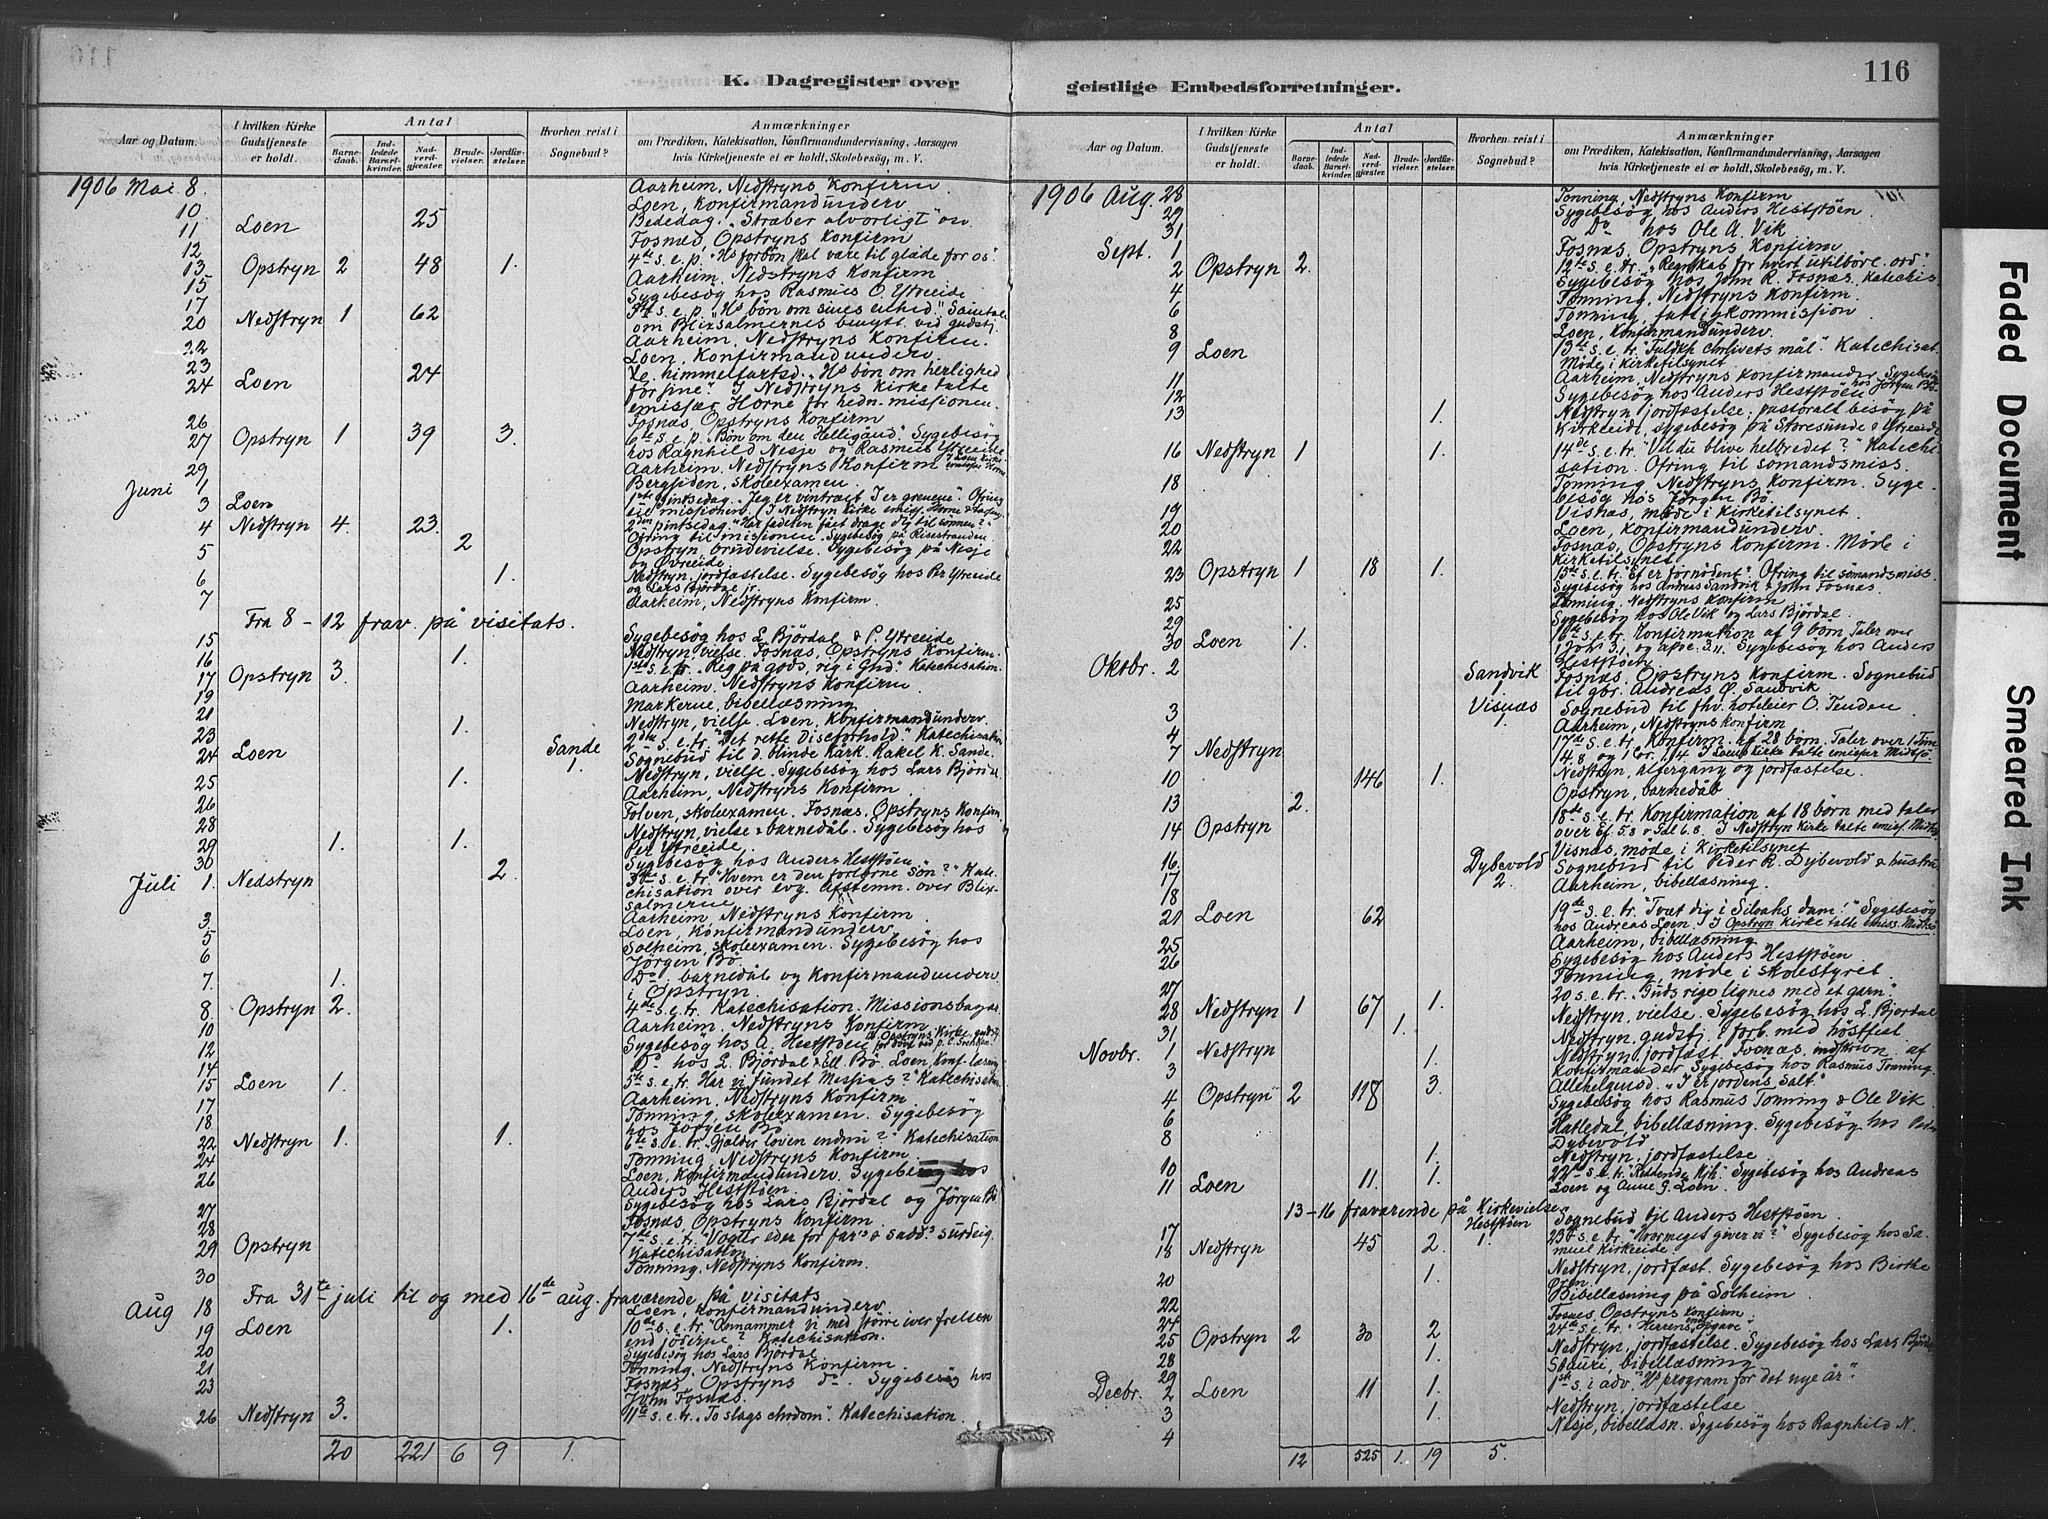 116
K. Dagregister over
geistlige Embedsforretninger.
Aar og Datum.
I hvilken Kirke Gudstjeneste er holdt.
Antal
Barnedaab.
Indledede Barselkvinder.
Nadverdgjester.
Brudevielser.
Jordfæstelser.
Hvorhen reist i Sognebud?
Anmærkninger
om Prædiken, Katekisation, Konfirmandundervisning, Aarsagen
hvis Kirketjeneste ei er holdt, Skolebesög, m. V.
1906 Mai 8. Aarheim, Nedstryns Konfirm.
10 Loen, Konfirmandunderv.
11 Loen 25 Bededag. "Stræber alvorligt" 
12 Fosnæs, Opstryns Konfirm
13 Opstryn 2 48 1. 4de s. e. p. "Hs forbön skal være til glæde for os".
15 Aarheim. Nedstryns Konfirm
17 Sygebesög hos Rasmus O. Ytreeide
20 Nedstryn 1 62 s. e. p. "Hs bön om sines enhed." Samtale
om Blixsalmernes benytt. ved gudstj.
22 Aarheim, Nedstryns Konfirm.
23 Loen, Konfirmandunderv.
24 Loen 24 himmelfartsd. "Hs bön om herlighed
for sine". I Nedstryns Kirke talte
emissær Horne for hedn. missionen.
26 Fosnæs, Opstryns Konfirm
27 Opstryn 1 39 3. 6te s. e. p. "Bön om den Helligånd". Sygebesög
hos Ragnhild Nesje og Rasmus Ytreeide
29 Aarheim. Nedstryns Konfirm
Juni 1 Bergsiden, skoleexamen.
3 Loen 1ste pintsedag. "Jeg er vintræet, I er grenene". Ofring
til missionen. I Nedstryn Kirke emiss. Horne
4 Nedstryn 4. 23. 2den pintsedag. "Har faderen fået drage dig til sönnen?"
Ofring til missionen. Sygebesög på Risestranden
5 2 Opstryn, brudevielse. Sygebesög på Nesje
og Övreeide.
6 1. Nedstryn, jordfæstelse. Sygebesög hos Per Ytreeide
og Lars Björdal jr.
7 Aarheim, Nedstryns Konfirm.
Fra 8 - 12 frav. på visitats.
15 Sygebesög hos L. Björdal & P. Ytreeide
16 1. Nedstryn, vielse. Fosnæs, Opstryns Konfirm.
17 Opstryn 3. 1ste s. e. tr. "Rig på gods, rig i Gud". Katechisation.
19 Aarheim. Nedstryns Konfirm
21 Markerne, bibellæsning
23 1. Nedstryn, vielse. Loen, Konfirmandunderv.
24 Loen Sande 1. 2den s. e. tr. "Det rette Disciforhold." Katechisation
Sognebud til d. blinde Kark. Rakel K. Sande.
25 1. Nedstryn, vielse. Sygebesög hos Lars Björdal
26 Aarheim, Nedstryns Konfirm.
28 Folven, skoleexamen. Fosnæs, Opstryns Konfirm.
29 1. 1. Nedstryn, vielse & barnedåb. Sygebesög hos
Per Ytreeide.
30 Sygebesög hos Anders Heststöen
Juli 1. Nedstryn 2. 3die s. e. tr. "Hvem er den forlorne sön?" Kate-
chisation over evg. Afstemn. over Blix-
salmerne
3. Aarheim, Nedstryns Konfirm
5 Loen, Konfirmandunderv.
6 Solheim, skoleexamen. Sygebesög hos
Jörgen Bö.
7. 1. Do., barnedåb og Konfirmandunderv.
i Opstryn.
8. Opstryn 2. 4de s. e. tr. Katechisation. Missionsbazar
10 Aarheim. Nedstryns Konfirm.
12 Sygebesög hos A. Heststöen
14 Do hos L. Björdal & Ell. Bö. Loen, Konf. læsning
15 Loen 1. 5te s. e. tr. "Har vi fundet Messias?" Katechisation
17 Aarheim, Nedstryns Konfirm
18 Tonning, skoleexamen. Sygebesög
hos Jörgen Bö.
22 Nedstryn 1. 1. 6te s. e. tr. "Gjælder loven endnu?" Katechisation
24 Tonning, Nedstryns Konfirm.
26 Loen, Konfirmandunderv. Sygebesög hos
Anders Heststöen.
27 Sygebesög hos Lars Björdal og Jörgen Bö.
28 Fosnæs, Opstryns Konfirm.
29 Opstryn 7de s. e. tr. "Vogter eder for far.s & sadd.s surdeig.
Katechisation
30 Tonning, Nedstryns Konfirm.
Fra 31te juli til og med 16de aug. fraværende på visitats
Aug 18 Loen, Konfirmandunderv.
19 Loen 1. 10de s. e. tr. "Annammer vi med större iver frelsen
end jöderne? Katechisation.
20 Sygebesög hos Lars Björdal
21 Tonning, Nedstryns Konfirm.
23 Fosnæs, Opstryns do. Sygebesög hos
John Fosnæs.
26 Nedstryn 3. 11te s. e. tr. "To slags chrdom". Katechisation.
20 221 6 9 1.
Aar og Datum.
I hvilken Kirke Gudstjeneste er holdt.
Antal
Barnedaab.
Indledede Barselkvinder.
Nadverdgjester.
Brudevielser.
Jordfæstelser.
Hvorhen reist i Sognebud?
Anmærkninger
om Prædiken, Katekisation, Konfirmandundervisning, Aarsagen
hvis Kirketjeneste ei er holdt, Skolebesög, m. V.
1906 Aug. 28 Tonning, Nedstryns Konfirm
29 Sygebesög hos Anders Heststöen.
31 Do hos Ole A. Vik
Sept. 1 Fosnæs, Opstryns Konfirm
2 Opstryn 2. 12te s. e. tr. "Regnskab for hvert utilbörl. ord".
4 Sygebesög hos John R. Fosnæs. Katechis.
6 Tonning, Nedstryns Konfirm.
Tonning, fattigkommission
8 Loen, Konfirmandunderv.
9 Loen 13de s. e. tr. "Fuldkh chrlivets mål". Katechisat.
Möde i Kirketilsynet
11 Aarheim, Nedstryns Konfirmander. Sygebesög
hos Jörgen Bö.
12 Sygebesög hos Anders Heststöen
13 1. Nedstryn jordfæstelse, pastoralt besög på
Kirkeeide, sygebesög på Storesunde & Ytreeide
16 Nedstryn 1 1. 14de s. e. tr. "Vil du blive helbredet?" Katechi-
sation. Ofring til sömandsmiss.
18 Tonning, Nedstryns Konfirm. Syge-
besög hos Jörgen Bö.
19 Visnæs, möde i Kirketilsynet.
20 Loen, Konfirmandunderv.
22 Fosnæs, Opstryns Konfirm. Möde i
Kirketilsynet
23 Opstryn 1 18 1. 15de s. e. tr. "Et er fornödent" Ofring til sömandsmiss.
Sygebesög hos Andreas Sandvik & John Fosnæs.
25 Tonning, Nedstryns Konfirm
29 Sygebesög hos Ole Vik og Lars Björdal.
30 Loen 1. 16de s. e. tr. Konfirmation af 9 börn. Taler over
1 Joh 3,1 og 3,11. Sygebesög hos Anders
Heststöen
Oktbr. 2 Sandvik 1 Fosnæs, Opstryns Konfirm. Sognebud
til gbr. Andreas O. Sandvik
3 Visnæs 1. Sognebud til fhv. hoteleier O. Tenden
4 Aarheim, Nedstryns Konfirm
7 Nedstryn 17de s. e. tr. Konfirm. af 28 börn. Taler over 1 Tim
I Loens Kirke talte emissær Midtsö.
10 146 1. Nedstryn, altergang og jordfæstelse.
13 2. Opstryn, barnedåb
14 Opstryn 18de s. e. tr. Konfirmation af 18 börn med taler
over Ef. 5.8 & Gal 6.8. I Nedstryn Kirke talte emiss. Midtsö
16. Visnæs, möde i Kirketilsynet
17 Dybevold 2. Sognebud til Peder R. Dybevold & hustru
18 Aarheim, bibellæsning.
21 Loen 62 19de s. e. tr. "Tvæt dig i Siloahs dam!" Sygebesög
hos Andreas Loen. I Opstryn Kirke talte emiss. Midtsö
25 Aarheim, bibellæsning
26 Sygebesög hos Anders Heststöen
27 Tonning, möde i skolestyret.
28 Nedstryn 1 67 1. 20 s. e. tr. "Guds rige lignes med et garn".
31 1. Nedstryn, vielse. Sygebesög hos L. Björdal.
Novbr. 1 Nedstryn Nedstryn, gudstj. i forb. med höstfest
3 1. Nedstryn, jordfæst. Fosnæs, indskrivn. af
Konfirmander. Sygebesög hos Rasmus Tonning.
4 Opstryn 2 118 3. Allehelgensd. "I er jordens salt".
6 Sygebesög hos Rasmus Tonning & Ole Vik
8 Hatledal, bibellæsning. Sygebesög hos Peder
Dybevold
10 1. Nedstryn, jordfæstelse
11 Loen 11. 1. 22de s. e. tr. Sygebesög hos Andreas
Loen og Anne G. Loen.
13 - 16 fraværende på Kirkevielse
17 Heststöen 1. Sognebud til Anders Heststöen.
18 Nedstryn 45 2. 23de s. e. tr. "Hvormeget giver vi?" Sygebesög hos Sa-
muel Kirkeeide
20 1. Nedstryn, jordfæst. Sygebesög hos Birthe
Ören.
22 Bibellæsning på Solheim.
24 Fosnæs Opstryns Konfirm.
25 Opstryn 2 30 2 24de s. e. tr. "Herrens opgave"
28 1. Nedstryn, jordfæstelse. Sygebesög hos Lars Björdal
29 Stauri, bibellæsning
Decbr. 2 Loen 11 1. 1ste s. i adv. "Hs program for det nye år".
3 1. Nedstryn, jordfæstelse
4 Nesje, bibellæsn. Sygebesög hos Ragnhild N.
12 525 1. 19 5.
Faded Document
Smeared Ink